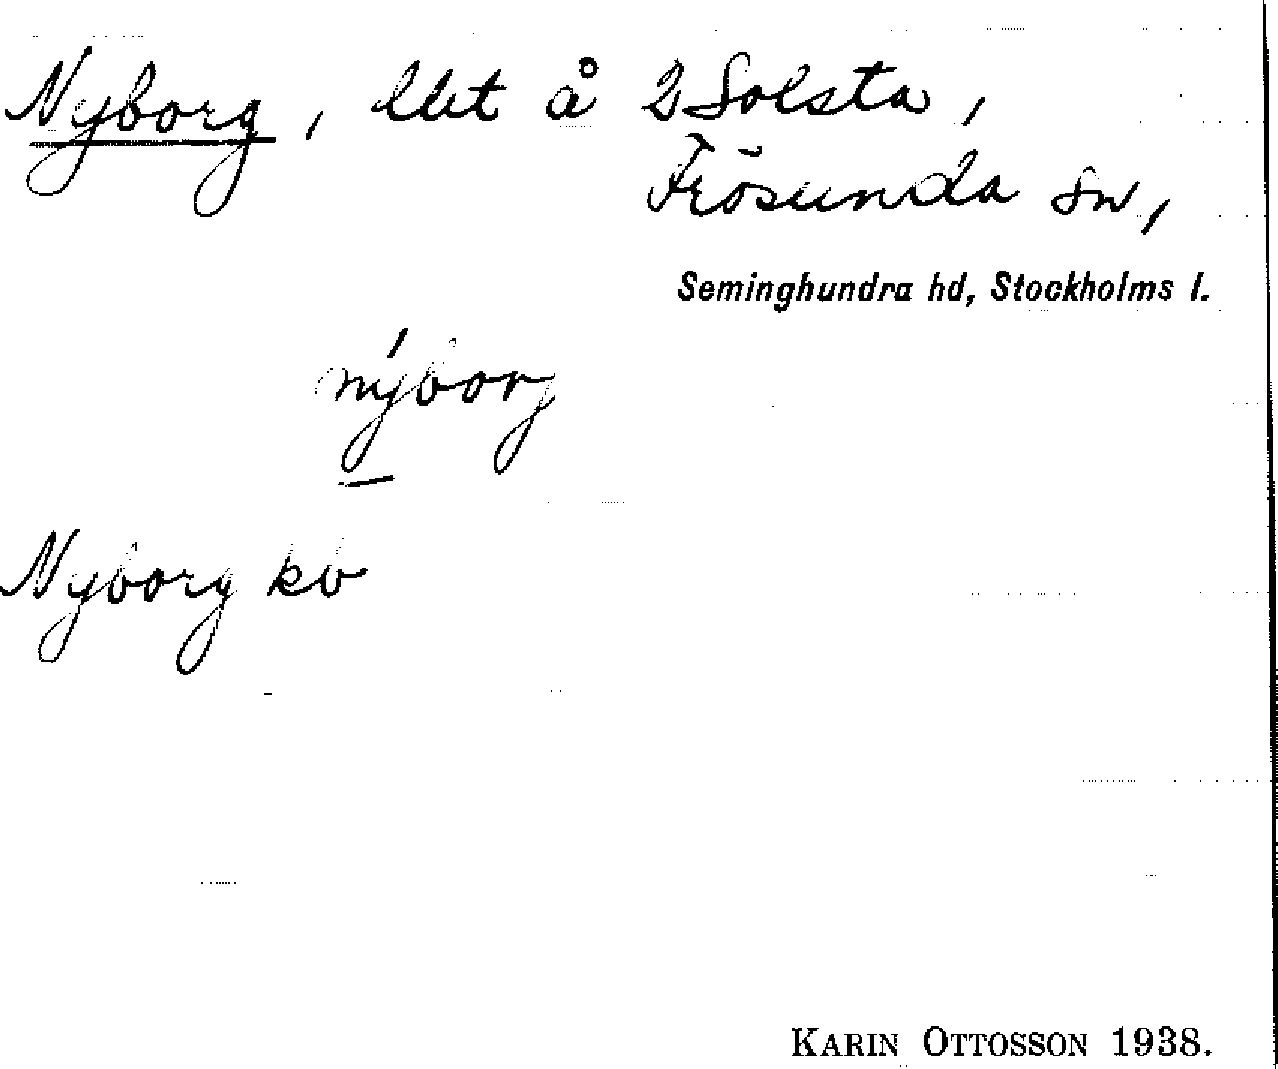 Nyborg, lht å 2 Solsta,
Frösunda sn,
Seminghundra hd, Stockholms l.
nýborg
Nyborg kb
KARIN OTTOSSON 1938.